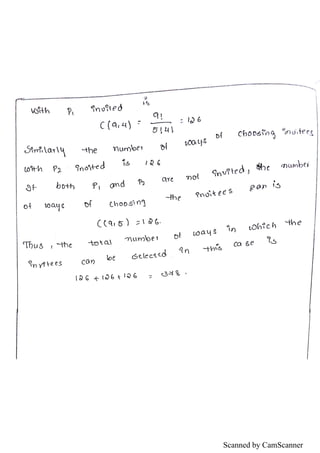 is
with P₁ invited
C(9,4) = 9! / 5!4! = 126
Similarly the number of ways of choosing invitees
with P₂ invited is 126
If both P₁ and P₂ are not invited, the number
of ways of choosing the invitees pan is
C(9,5) = 126.
Thus, the total number of ways in which the
invitees can be selected in this case is
126 + 126 + 126 = 378.
Scanned by CamScanner